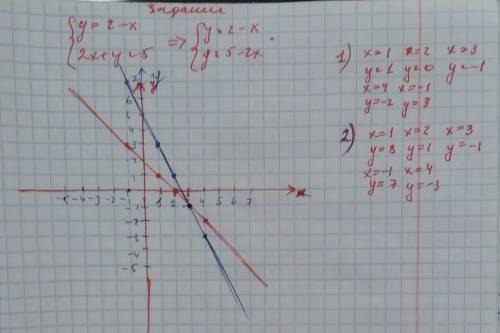 Задании
{y = 2 - x
2x + y = 5 => {y = 2 - x
y = 5 - 2x
1) x = 1 x = 2 x = 3
y = 1 y = 0 y = -1
x = 4 x = -1
y = -2 y = 3
2) x = 1 x = 2 x = 3
y = 3 y = 1 y = -1
x = -1 x = 4
y = 7 y = -3
y
x
-5 -4 -3 -2 -1 1 2 3 4 5 6 7
-1
-2
-3
-4
-5